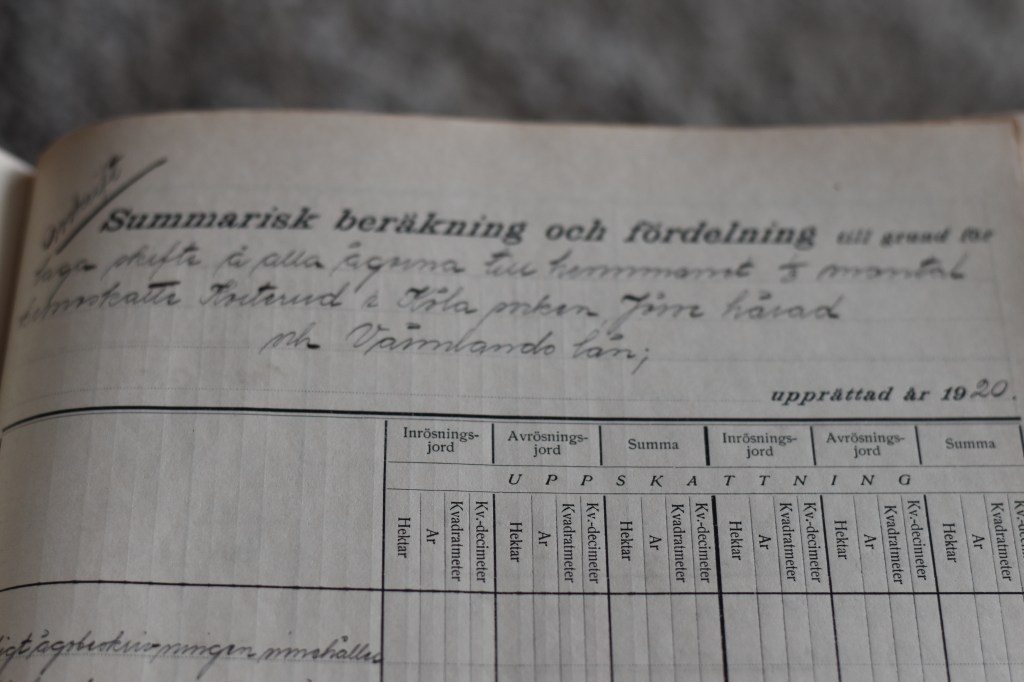 Summarisk beräkning och fördelning till grund för
laga skifte å alla ägorna till hemmanet mantal
i Köla socken Jösse härad
och Värmlands län;
upprättad år 1920.
Inrösnings-
jord
Avrösnings-
jord
Summa
Inrösnings-
jord
Avrösnings-
jord
Summa
UPPSKATTNING
Hektar Ar Kvadratmeter Kv.-decimeter Hektar Ar Kvadratmeter Kv.-decimeter Hektar Ar Kvadratmeter Kv.-decimeter Hektar Ar Kvadratmeter Kv.-decimeter Hektar Ar Kvadratmeter Kv.-decimeter Hektar Ar Kvadratmeter
ägobeskrivningen innehåller